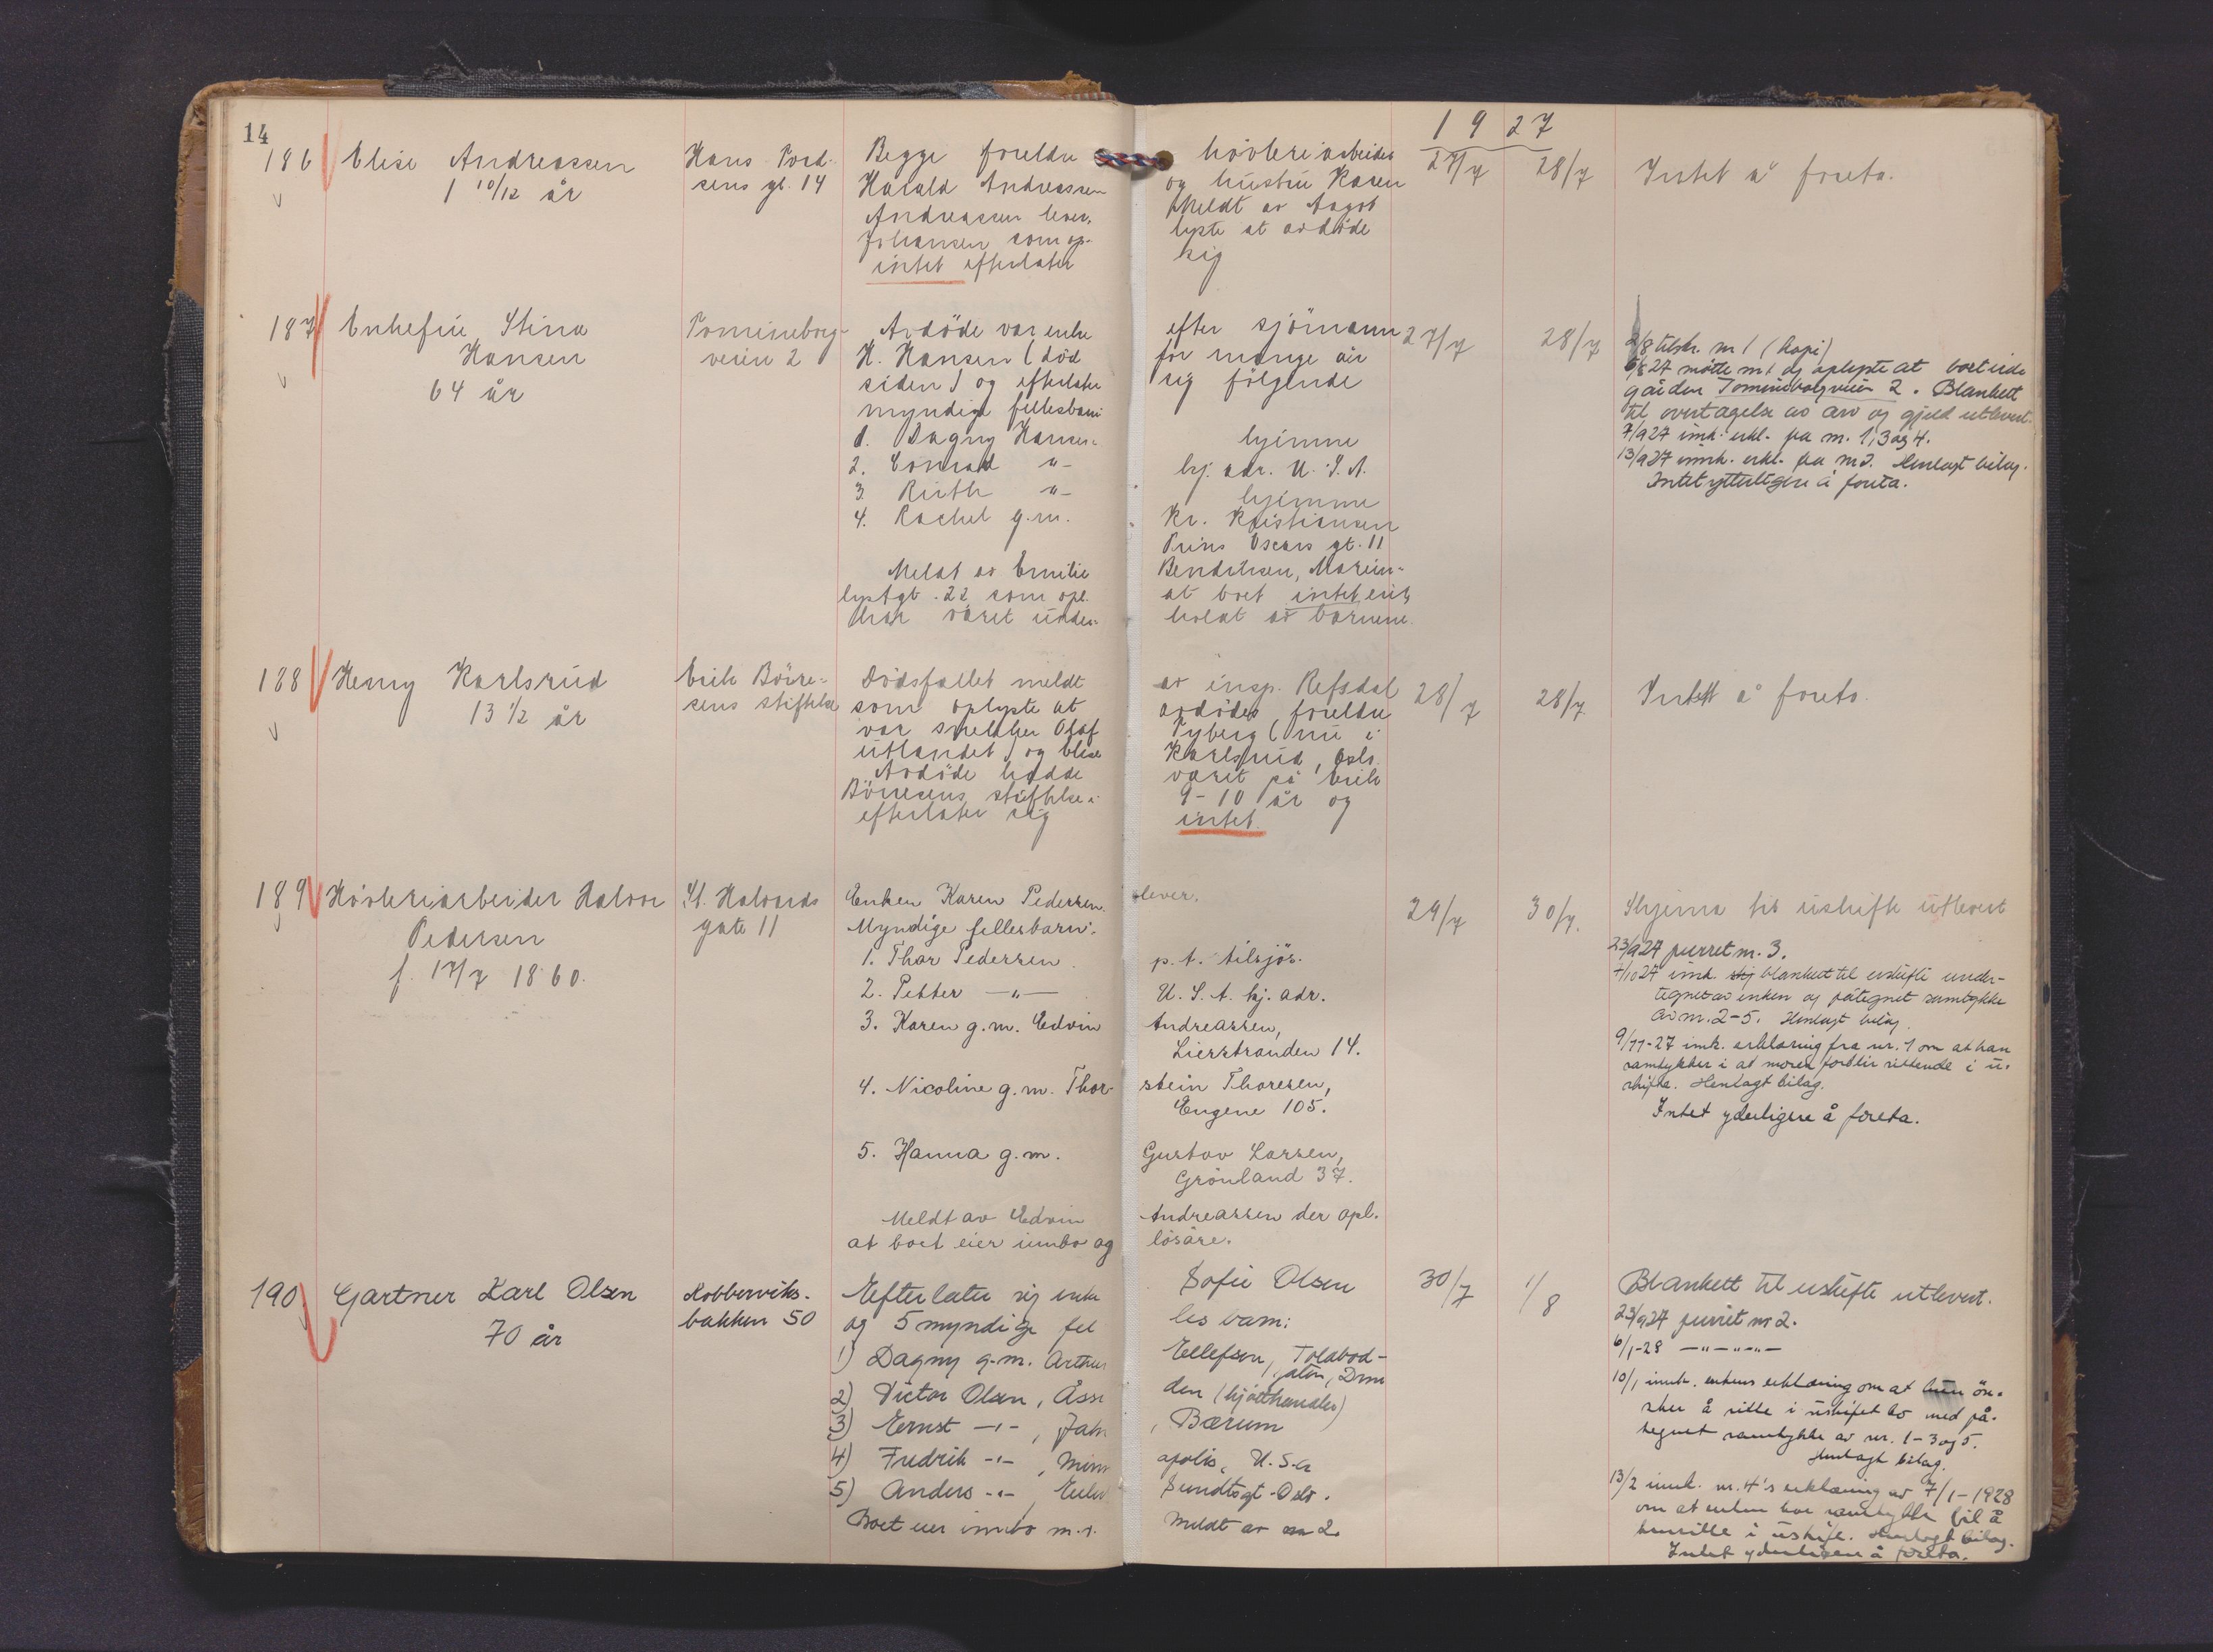 14
1927
186 Elise Andreassen
1 10/12 år
Hans Tord-
sens gt. 14
Begge foreldre høvleriarbeider
Harald Andreassen og hustru Karen
Andreassen lever. Meldt av Aagot
Johansen som op- lyste at avdøde
intet efterlater sig
27/7 28/7 Intet å foreta.
187 Enkefru Stina
Hansen
64 år
Tomineborg-
veien 2
Avdøde var enke efter sjømann
H. Hansen (død for mange år
siden) og efterlater sig følgende
myndige fellesbarn
1. Dagny Hansen hjemme
2. Conrad -"- bj. adr. U.S.A.
3. Ruth -"- hjemme
4. Rachel g.m. Kr. Kristiansen
Prins Oscars gt. 11
Meldt av Emilie Bendiksen, Marien-
lystgt. 22 som opl. at boet intet eier,
har været under- holdt av barnene.
27/7 28/7
2/8 tilskr. nr 1 (kopi)
5/8 27 møtte nr 1 og oplyste at boet eide
gården Tomineborgveien 2. Blankett
til overtagelse av arv og gjeld utlevert.
7/9 27 innk. erkl. fra nr. 1, 3 og 4.
13/9 27 innk. erkl. fra nr 2. Henlagt bilag.
Intet ytterligere å foreta.
188 Henny Karlsrud
13 1/2 år
Erik Börre-
sens stiftelse
Dödsfallet meldt av insp. Refsdal
som oplyste at avdödes foreldre
var snekker Olaf Nyberg (nu i
utlandet) og Elise Karlsrud, Oslo.
Avdöde hadde været på Erik
Börresens stiftelse i 9-10 år og
efterlater sig intet.
28/7 28/7 Intet å foreta
189 Hövleriarbeider Halvor
Pedersen
f. 17/7 1860.
St. Halvards
gate 11
Enken Karen Pedersen lever.
Myndige fellesbarn:
1. Thor Pedersen p.t. tilsjös.
2. Petter -"- U.S.A. bj. adr.
3. Karen g.m. Edvin Andreassen,
Lierstranden 14.
4. Nicoline g.m. Thor- stein Thoresen,
Eugene 105.
5. Hanna g.m. Gustav Larsen,
Grønland 37.
Meldt av Edvin Andreassen der opl.
at boet eier innbo og løsøre.
29/7 30/7. Skjema til uskifte utlevert
23/9 27 purret nr. 3.
7/10 27 innk. blankett til uskifte under-
tegnet av enken og påtegnet samtykke
av nr. 2-5. Henlagt bilag.
9/11-27 innk. erklæring fra nr. 1 om at han
samtykker i at moren forblir sittende i u-
skifte. Henlagt bilag.
Intet yderligere å foreta.
190 Gartner Karl Olsen
70 år
Kobberviks-
bakken 50
Efterlater sig enke Sofie Olsen
og 5 myndige fel les barn:
1) Dagny g.m. Arthur Ellefsen, Toldbod-
gaten, Drm
2) Victor Olsen, Åss den (kjøtthandler)
3) Ernst -"-, Jah , Bærum
4) Fredrik -"-, Minn apolis, U.S.A
5) Anders -"- Eilert Sundtsgt. Oslo.
Boet eier innbo m.v. Meldt av nr 2.
30/7 1/8 Blankett til uskifte utlevert.
23/9 27 purret nr 2.
6/1-28 -"-"-"-
10/1 innk. enkens erklæring om at hun øn-
sker å sitte i uskiftet bo med på-
tegnet samtykke av nr. 1-3 og 5.
Henlagt bilag.
13/2 innk. nr. 4's erklæring av 7/1-1928
om at enken har samtykke til å
hensitte i uskifte. Henlagt bilag.
Intet yderligere å foreta.